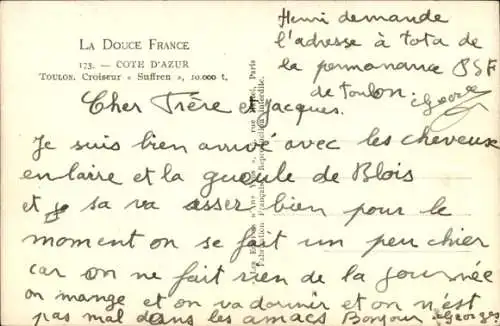 LA DOUCE FRANCE
173. — COTE D'AZUR
TOULON. Croiseur « Suffren », 10.000 t.
Henri demande
l'adresse à tota de
la permanance PSF
de toulon.
George
Cher Frére et Jacques.
Je suis bien arrivé avec les cheveux
en l'aire et la gueule de Blois
et sa va asser bien pour le
moment on se fait un peu chier
car on ne fait rien de la journée
on mange et on va dormir et on n'est
pas mal dans les amacs Bonjour Georges
Les Editions d'Art rue Paris
Fabrication Française, Reproduction Interdite.